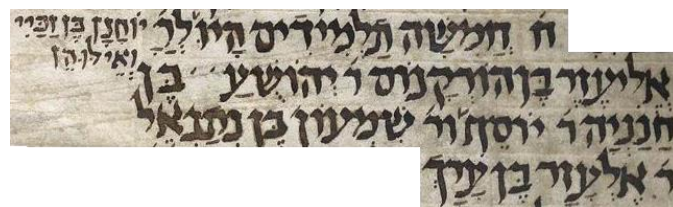 ח חֲמִשָּׁה תַלְמִידִים הָיוּ לְרַ' יוֹחָנָן בֶּן זַכַּיי
וְאֵילוּ הֵן
אֱלִיעֶזֶר בֶּן הוֹרְקָנוֹס ר' יְהוֹשֻׁעַ בֶּן
חֲנַנְיָה ר' יוֹסֵה ור' שִׁמְעוֹן בֶּן נְתַנְאֵל
ר' אֶלְעָזָר בֶּן עֲרָךְ